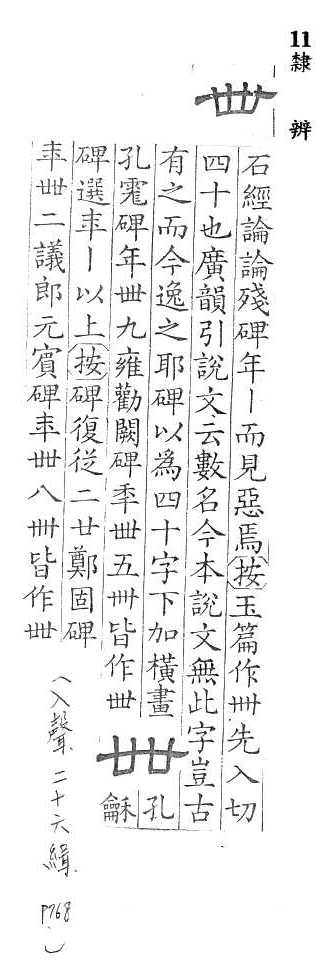 11 隸辨
卌
石經論論殘碑年丨而見惡焉按玉篇作卌先入切
四十也廣韻引說文云數名今本說文無此字豈古
有之而今逸之耶碑以為四十字下加橫畫
孔碑年卌九雍勸闕碑秊卌五卌皆作卌
廿廿
孔
龢
碑選年丨以上按碑復從二廿鄭固碑
年卌二議郎元賓碑年卌八卌皆作卌
(入聲 二十六緝 P768)